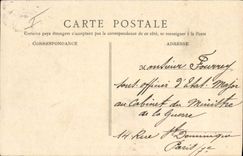 CARTE POSTALE
Certains pays étrangers n'acceptent pas la correspondance de ce côté, se renseigner à la Poste
CORRESPONDANCE
ADRESSE
Monsieur Fourrey
sous officier d'Etat Major
au Cabinet du Ministre
de la Guerre
14 Rue St Dominique
Paris 7e